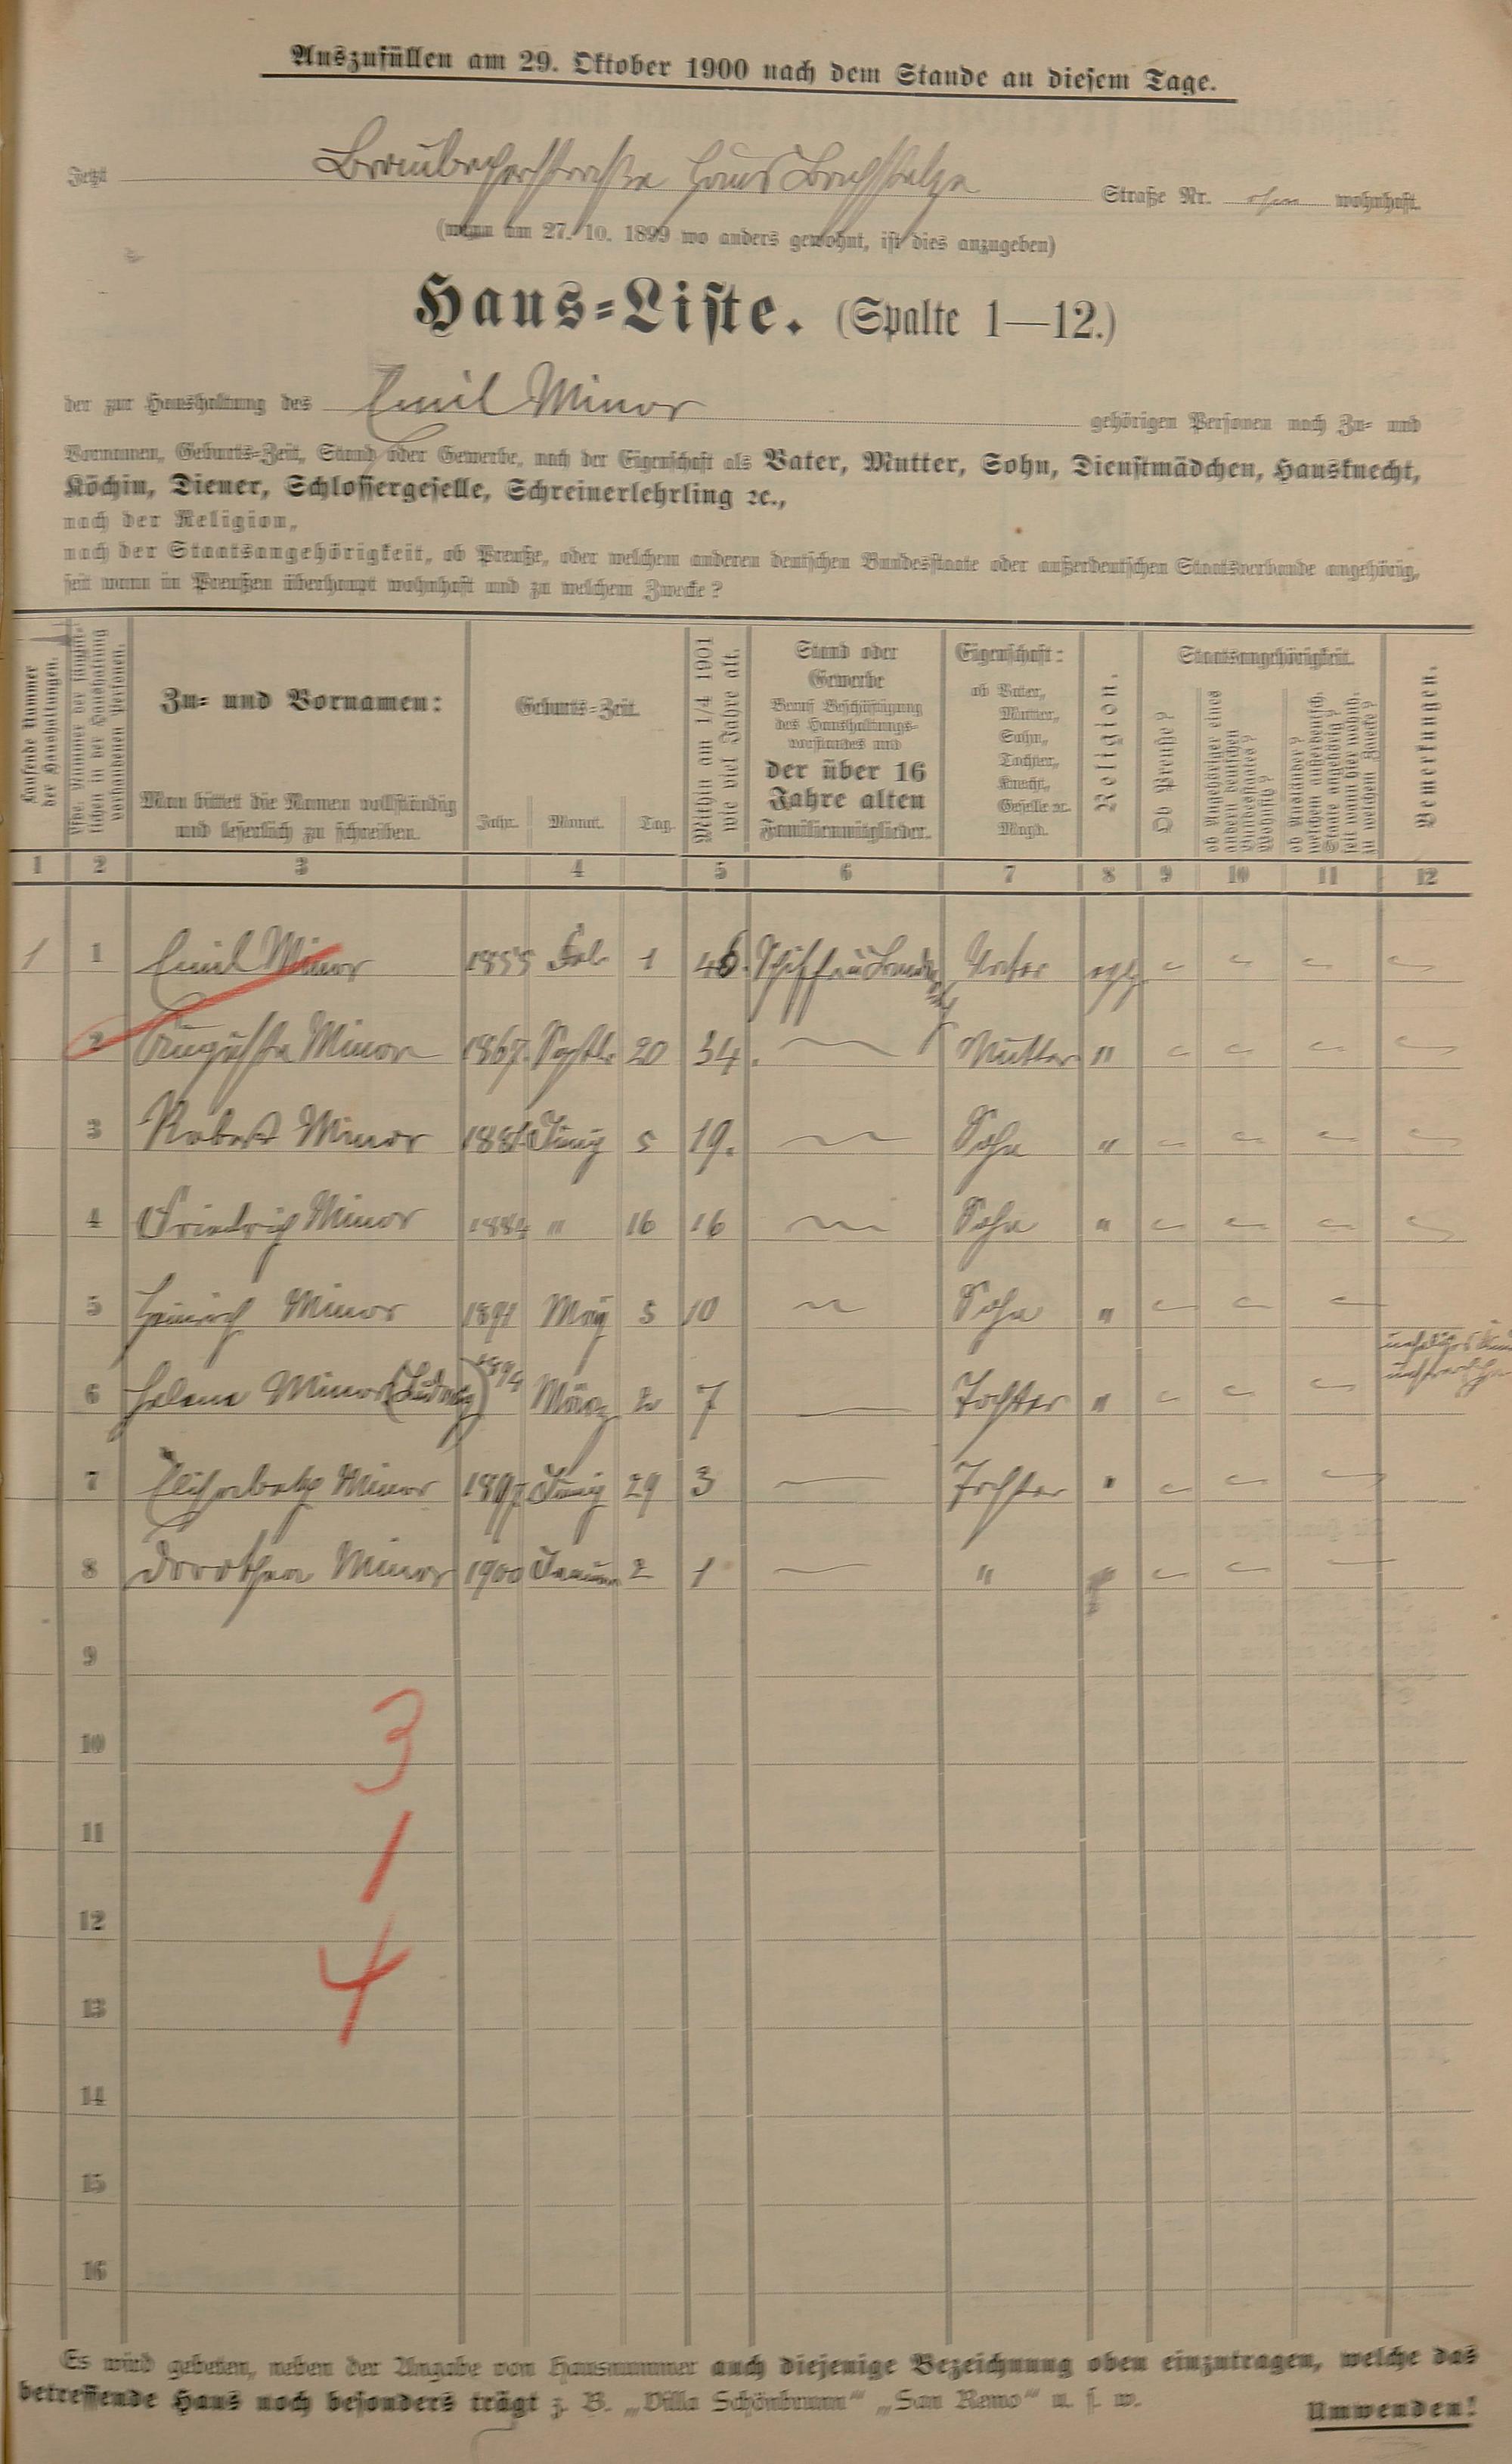 Auszufüllen am 29. Oktober 1900 nach dem Stande an diesem Tage.
Jetzt Haus Straße Nr. ohne wohnhaft.
(wenn am 27. 10. 1899 wo anders gewohnt, ist dies anzugeben)
Haus-Liste. (Spalte 1—12.)
der zur Haushaltung des Emil Minor gehörigen Personen nach Zu- und
Vornamen, Geburts-Zeit, Stand oder Gewerbe, nach der Eigenschaft als Vater, Mutter, Sohn, Dienstmädchen, Hausknecht,
Köchin, Diener, Schlossergeselle, Schreinerlehrling ꝛc.,
nach der Religion,
nach der Staatsangehörigkeit, ob Preuße, oder welchem anderen deutschen Bundesstaate oder außerdeutschen Staatsverbande angehörig,
seit wann in Preußen überhaupt wohnhaft und zu welchem Zwecke?
Laufende Nummer der Haushaltungen.
Lfde. Nummer der sämmtlichen in der Haushaltung vorhandenen Personen.
Zu- und Vornamen:
Man bittet die Namen vollständig
und leserlich zu schreiben.
Geburts-Zeit.
Jahr. Monat. Tag.
Mithin am 1/4 1901 wie viel Jahre alt.
Stand oder
Gewerbe
Beruf Beschäftigung
des Haushaltungs-
vorstandes und
der über 16
Jahre alten
Familienmitglieder.
Eigenschaft:
ob Vater,
Mutter,
Sohn,
Tochter,
Knecht,
Geselle ꝛc.
Magd.
Religion.
Staatsangehörigkeit.
Ob Preuße?
ob Angehöriger eines andern deutschen Bundesstaates? Wohnsitz?
ob Ausländer? welchem außerdeutsch. Staate angehörig? seit wann hier wohnh. zu welchem Zwecke?
Bemerkungen.
1 2 3 4 5 6 7 8 9 10 11 12
1 1 Emil Minor 1855 Feb. 1 46. Vater
2 Auguste Minor 1867. Septbr 20 34. Mutter "
3 Robert Minor 1881 Juny 5 19. Sohn "
4 Friedrich Minor 1884 " 16 16 Sohn "
5 Heinrich Minor 1891 May 5 10 Sohn "
6 Helene Minor (Ludwig) 1894 März 2 7 Tochter "
7 Elisabeth Minor 1897 Juny 29 3 Tochter "
8 Dorothea Minor 1900 Januar 2 1 "
9
10
11
12
13
14
15
16
3
1
4
Es wird gebeten, neben der Angabe von Hausnummer auch diejenige Bezeichnung oben einzutragen, welche das
betreffende Haus noch besonders trägt z. B. „Villa Schönbrunn“ „San Remo“ u. s. w.
Umwenden!